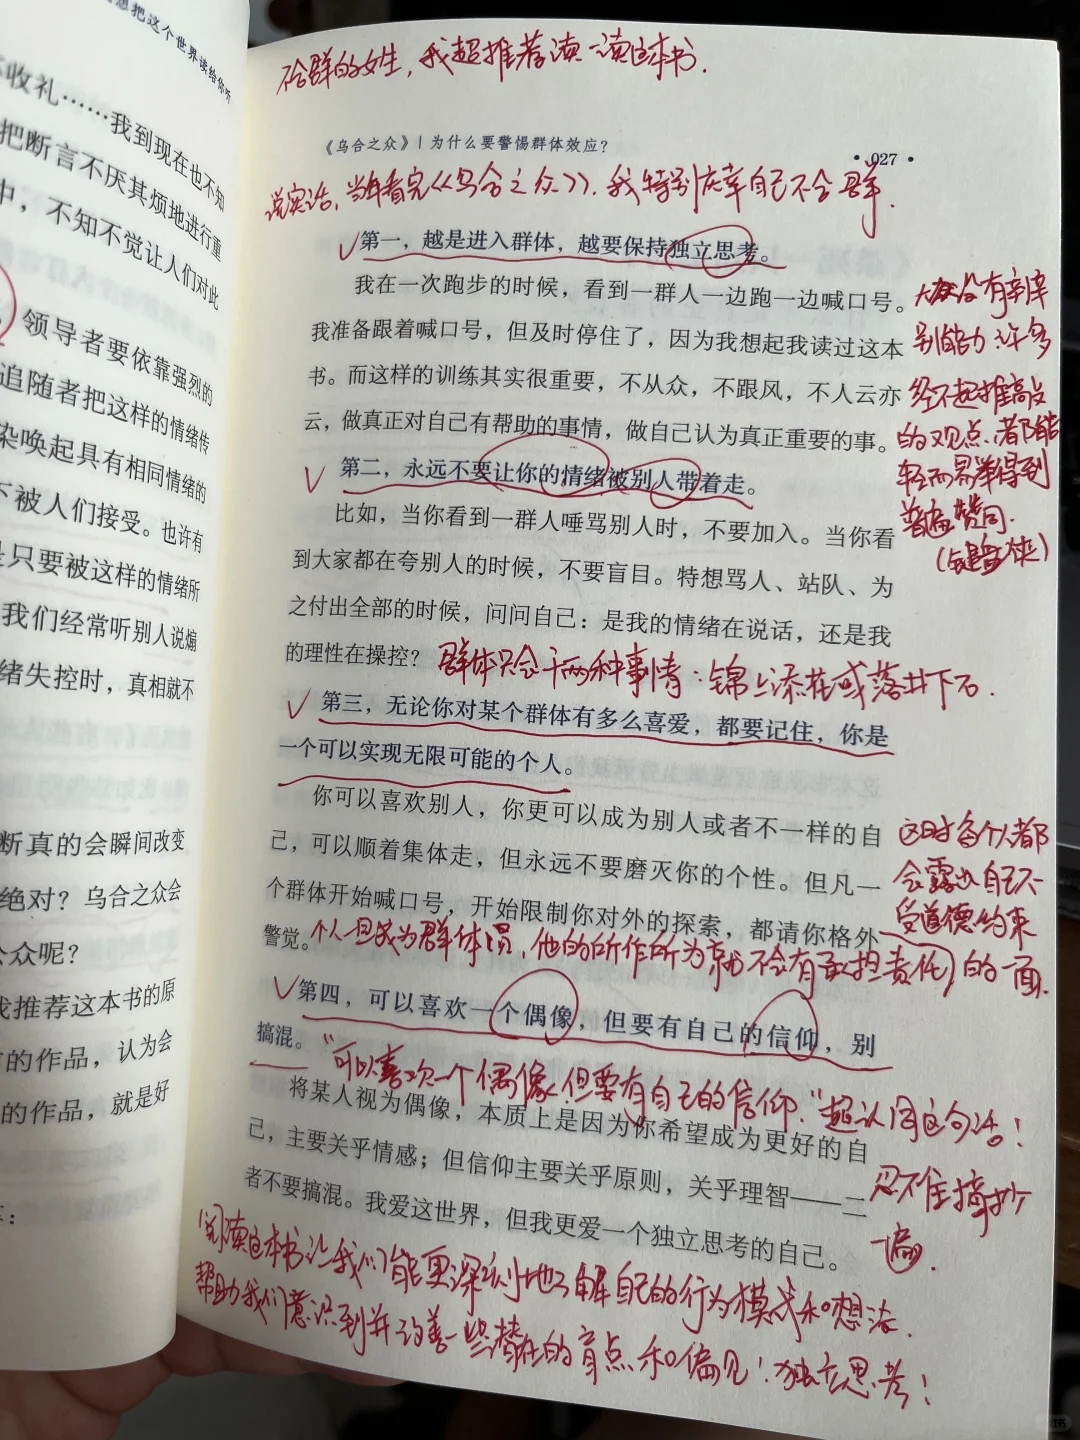 想把这个世界读给你听
收礼……我到现在也不知
把断言不厌其烦地进行重
中，不知不觉让人们对此
领导者要依靠强烈的
追随者把这样的情绪传
染唤起具有相同情绪的
不被人们接受。也许有
是只要被这样的情绪所
我们经常听别人说煽
绪失控时，真相就不
断真的会瞬间改变
绝对？乌合之众会
公众呢？
我推荐这本书的原
的作品，认为会
的作品，就是好
不合群的女生，我超推荐读一读这本书.
《乌合之众》 | 为什么要警惕群体效应？
• 027 •
说实话，当年看完《乌合之众》，我特别庆幸自己不合群.
第一，越是进入群体，越要保持独立思考。
我在一次跑步的时候，看到一群人一边跑一边喊口号。
我准备跟着喊口号，但及时停住了，因为我想起我读过这本
书。而这样的训练其实很重要，不从众，不跟风，不人云亦
云，做真正对自己有帮助的事情，做自己认为真正重要的事。
大众没有辛辛
别能力，许多
经不起推敲
的观点，都能
轻而易举得到
普遍赞同.
（键盘侠）
第二，永远不要让你的情绪被别人带着走。
比如，当你看到一群人唾骂别人时，不要加入。当你看
到大家都在夸别人的时候，不要盲目。特想骂人、站队、为
之付出全部的时候，问问自己：是我的情绪在说话，还是我
的理性在操控？
群体只会干两种事情：锦上添花或落井下石.
第三，无论你对某个群体有多么喜爱，都要记住，你是
一个可以实现无限可能的个人。
你可以喜欢别人，你更可以成为别人或者不一样的自
己，可以顺着集体走，但永远不要磨灭你的个性。但凡一
个群体开始喊口号，开始限制你对外的探索，都请你格外
警觉。
个人一旦成为群体员，他的所作所为就不会有承担责任，
这时每个人都
会露出自己不
受道德约束
的一面.
第四，可以喜欢一个偶像，但要有自己的信仰，别
搞混。
“可以喜欢一个偶像，但要有自己的信仰.”超认同这句话！
忍不住摘抄
一遍.
将某人视为偶像，本质上是因为你希望成为更好的自
己，主要关乎情感；但信仰主要关乎原则，关乎理智——二
者不要搞混。我爱这世界，但我更爱一个独立思考的自己。
阅读这本书让我们能更深刻地了解自己的行为模式和想法.
帮助我们意识到并改善一些潜在的盲点和偏见！独立思考！